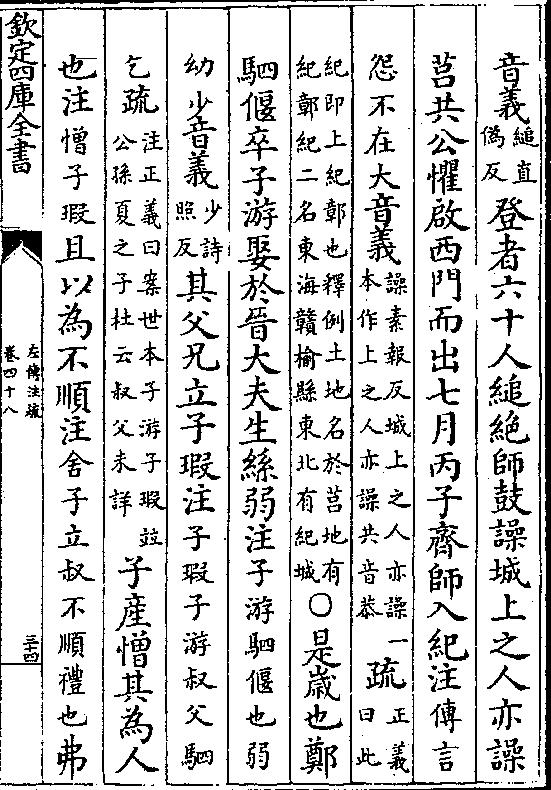 音義縋直偽反登者六十人縋絶師鼓譟城上之人亦譟
莒共公懼啟西門而出七月丙子齊師入紀注傳言
怨不在大音義譟素報反城上之人亦譟一本作上之人亦譟共音恭疏正義曰此
紀即上紀鄣也釋例土地名於莒地有紀鄣紀二名東海贛榆縣東北有紀城〇是歲也鄭
駟偃卒子游娶於晉大夫生絲弱注子游駟偃也弱
幼少音義少詩照反其父兄立子瑕注子瑕子游叔父駟
乞疏注正義曰案世本子游子瑕並公孫夏之子杜云叔父未詳子產憎其為人
也注憎子瑕且以為不順注舍子立叔不順禮也弗
欽定四庫全書
左傳注疏
卷四十八
三十四